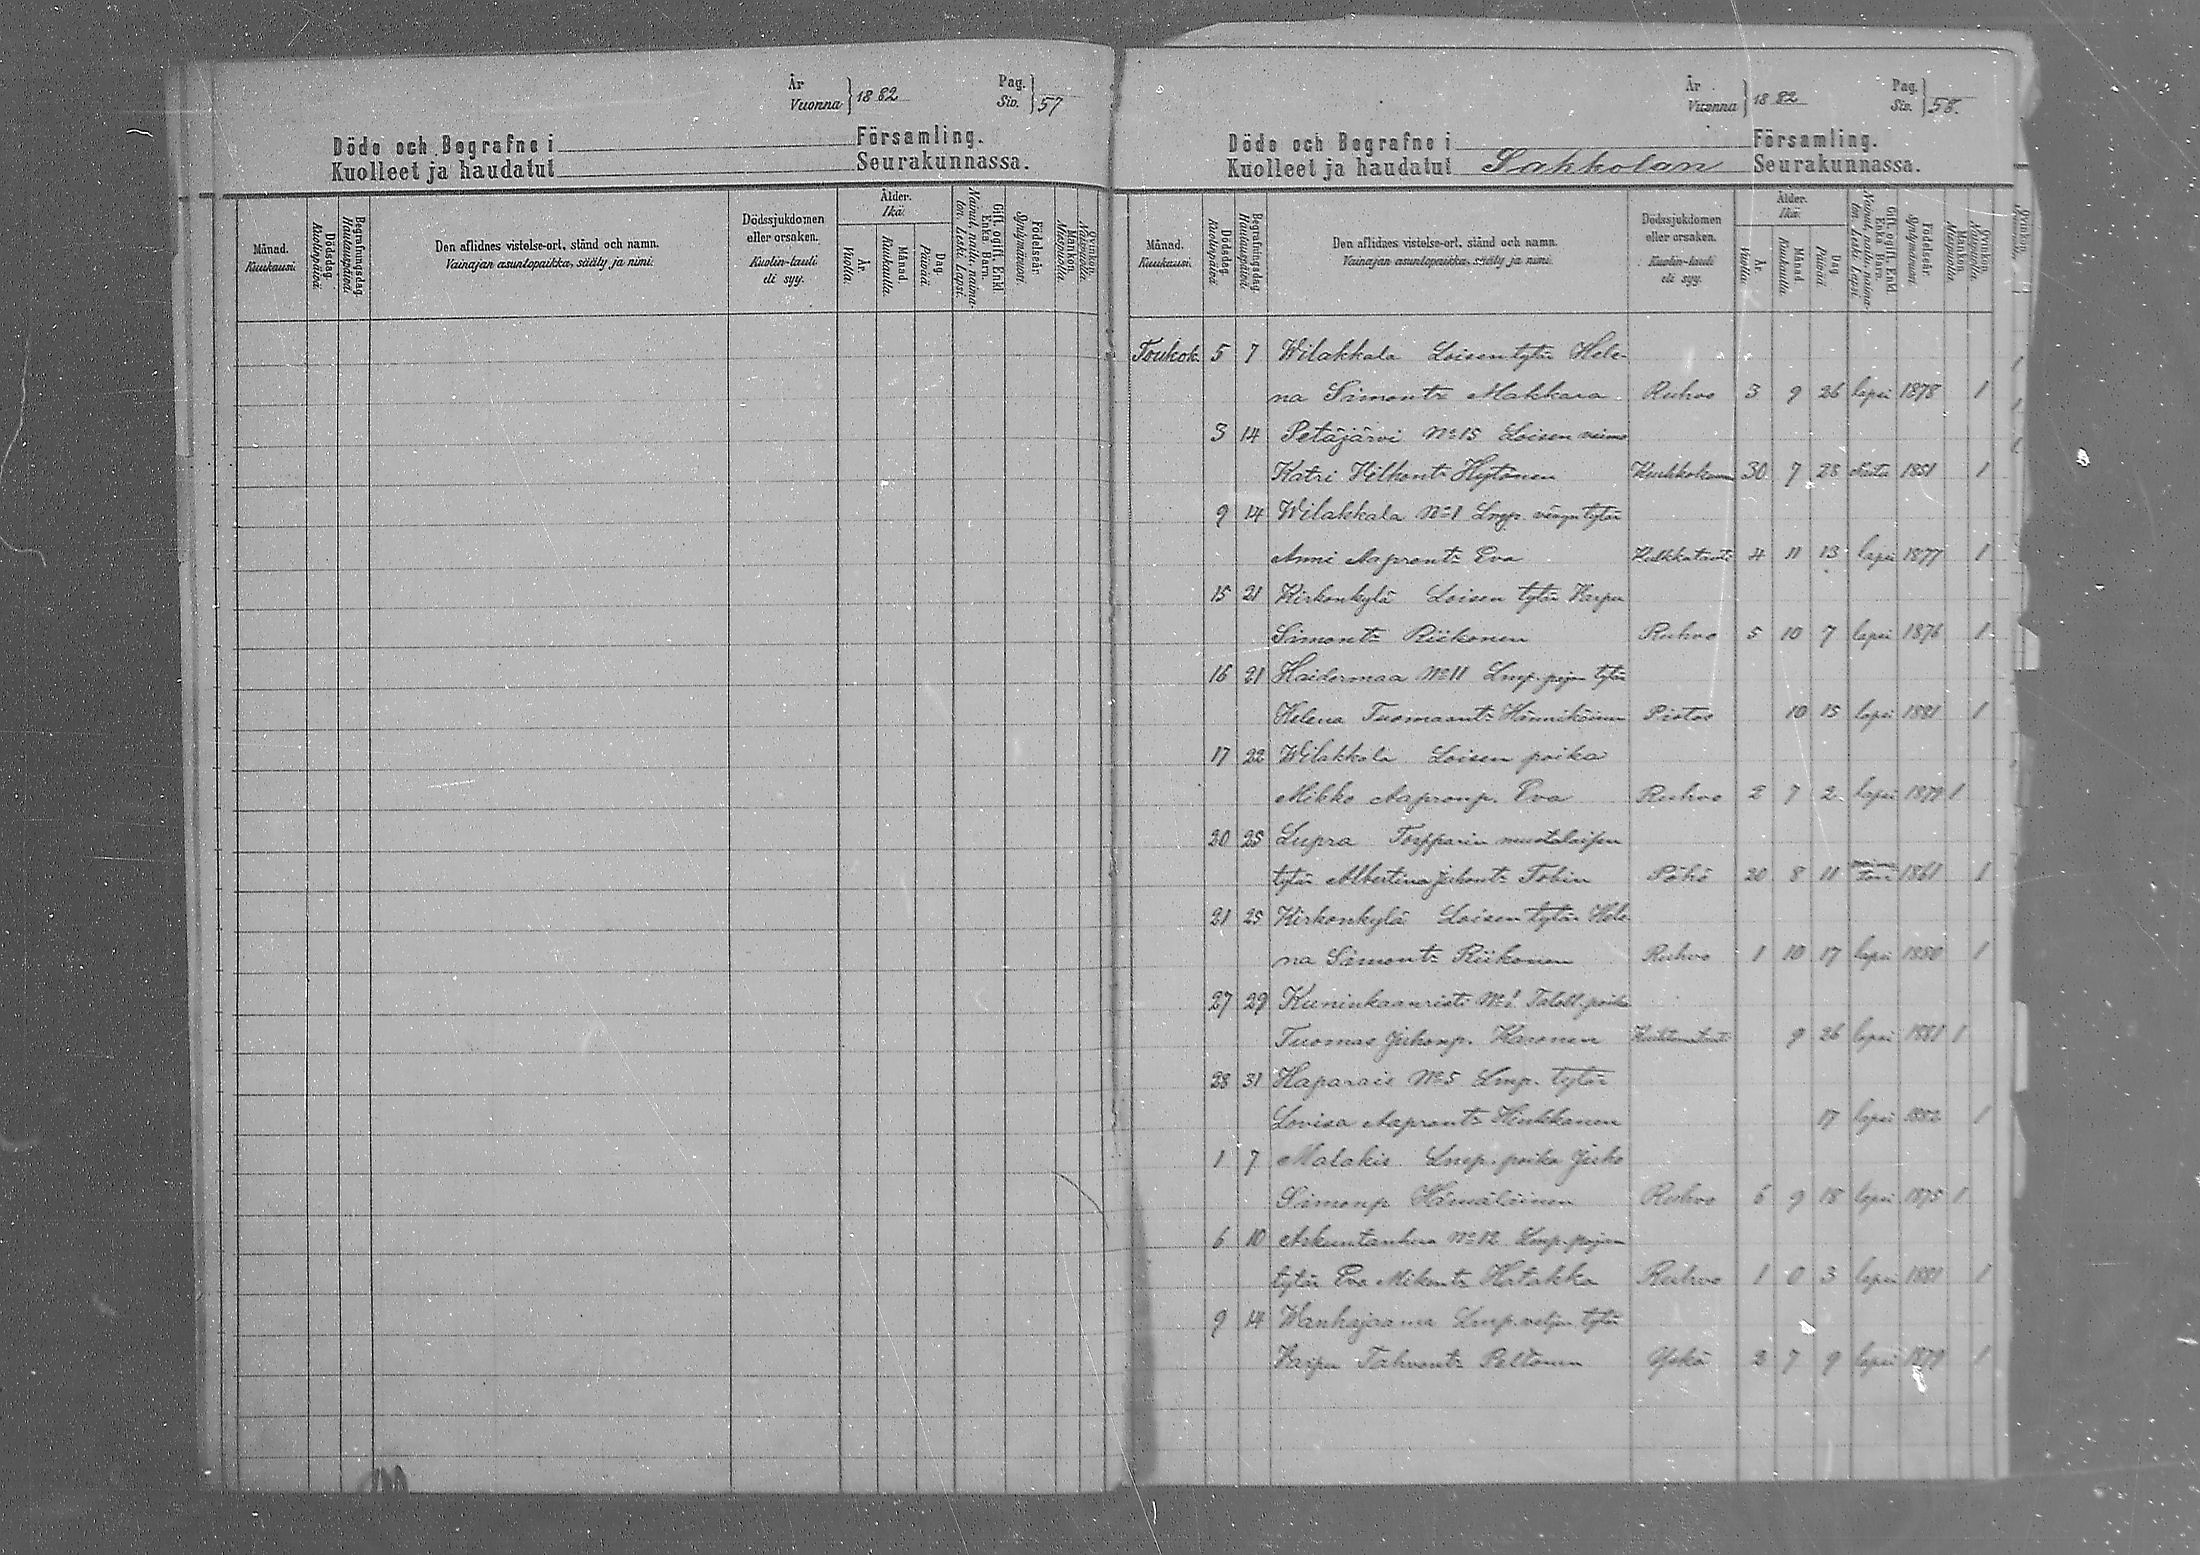 År
Vuonna } 1882
Pag.
Siv. } 57
Döde och Begrafne i Församling.
Kuolleet ja haudatut Seurakunnassa.
Månad. Kuukausi.
Dödsdag. Kuolinpäivä.
Begrafningsdag. Hautauspäivä
Den aflidnes vistelse-ort, stånd och namn.
Vainajan asuntopaikka, sääty ja nimi.
Dödssjukdomen eller orsaken.
Kuolin-tauti eli syy.
Ålder. Ikä.
År. Vuotta.
Månad. Kuukautta.
Dag. Päivää
Gift, ogift, Enkl. Enka Barn.
Nainut, naitu, naimaton. Leski. Lapsi.
Födelseår. Syntymävuosi.
Mankön. Miespuolia.
Qvinkön. Naispuolia.
År
Vuonna } 1882
Pag.
Siv. } 58.
Döde och Begrafne i Församling.
Kuolleet ja haudatut Sakkolan Seurakunnassa.
Månad. Kuukausi.
Dödsdag. Kuolinpäivä
Begrafningsdag. Hautauspäivä
Den aflidnes vistelse-ort, stånd och namn.
Vainajan asuntopaikka, sääty ja nimi.
Dödssjukdomen eller orsaken.
Kuolin-tauti eli syy.
Ålder. Ikä.
År. Vuotta.
Månad. Kuukautta.
Dag. Päivää
Gift, ogift, Enkl. Enka Barn.
Nainut, naitu, naimaton. Leski. Lapsi.
Födelseår. Syntymävuosi.
Mankön. Miespuolia.
Qvinkön. Naispuolia.
Toukok. 5 7 Wilakkala Loisen tytär Hele-
na Simont: Makkara Ruhvo 3 9 26 lapsi 1878 1
3 14 Petäjärvi No 15 Loisen vaimo
Katri Hilkont: Hytönen 30 7 28 1851 1
9 14 Wilakkala No 1 Lmp. tytär
Anni Aapront: Eva 4 11 13 lapsi 1877 1
15 21 Kirkonkylä Loisen tytär Karpu
Simont: Riikonen Ruhvo 5 10 7 lapsi 1876 1
16 21 Haidermaa No 11 Lmp. pojan tytär
Helena Tuomaant: Hännikäinen Pistos 10 15 lapsi 1881 1
17 22 Wilakkala Loisen poika
Mikko Aapronp. Eva Ruhvo 2 7 2 lapsi 1879 1
20 25 Lupra Torpparin mustalaisen
tytär Albertina Juhont: Tobin Pöhö 20 8 11 1861 1
21 25 Kirkonkylä Loisen tytär Hele-
na Simont: Riikonen Ruhvo 1 10 17 lapsi 1880 1
27 29 Kuninkaanristi No 1 Taloll. poika
Tuomas Juhonp. Karonen 9 26 lapsi 1881 1
28 31 Haparais No 5 Lmp. tytär
Lovisa Aapront: Hinkkanen 17 lapsi 1882 1
1 7 Malakis Lmp. poika Juho
Simonp Hämäläinen Ruhvo 6 9 18 lapsi 1875 1
6 10 No 12 Lmp. pojan
tytär Eva Mikont: Hatakka Ruhvo 1 0 3 lapsi 1881 1
9 14 Wanhajaama Lmp. veljen tytär
Karpu Tahvont: Peltonen Yskä 2 7 9 lapsi 1879 1